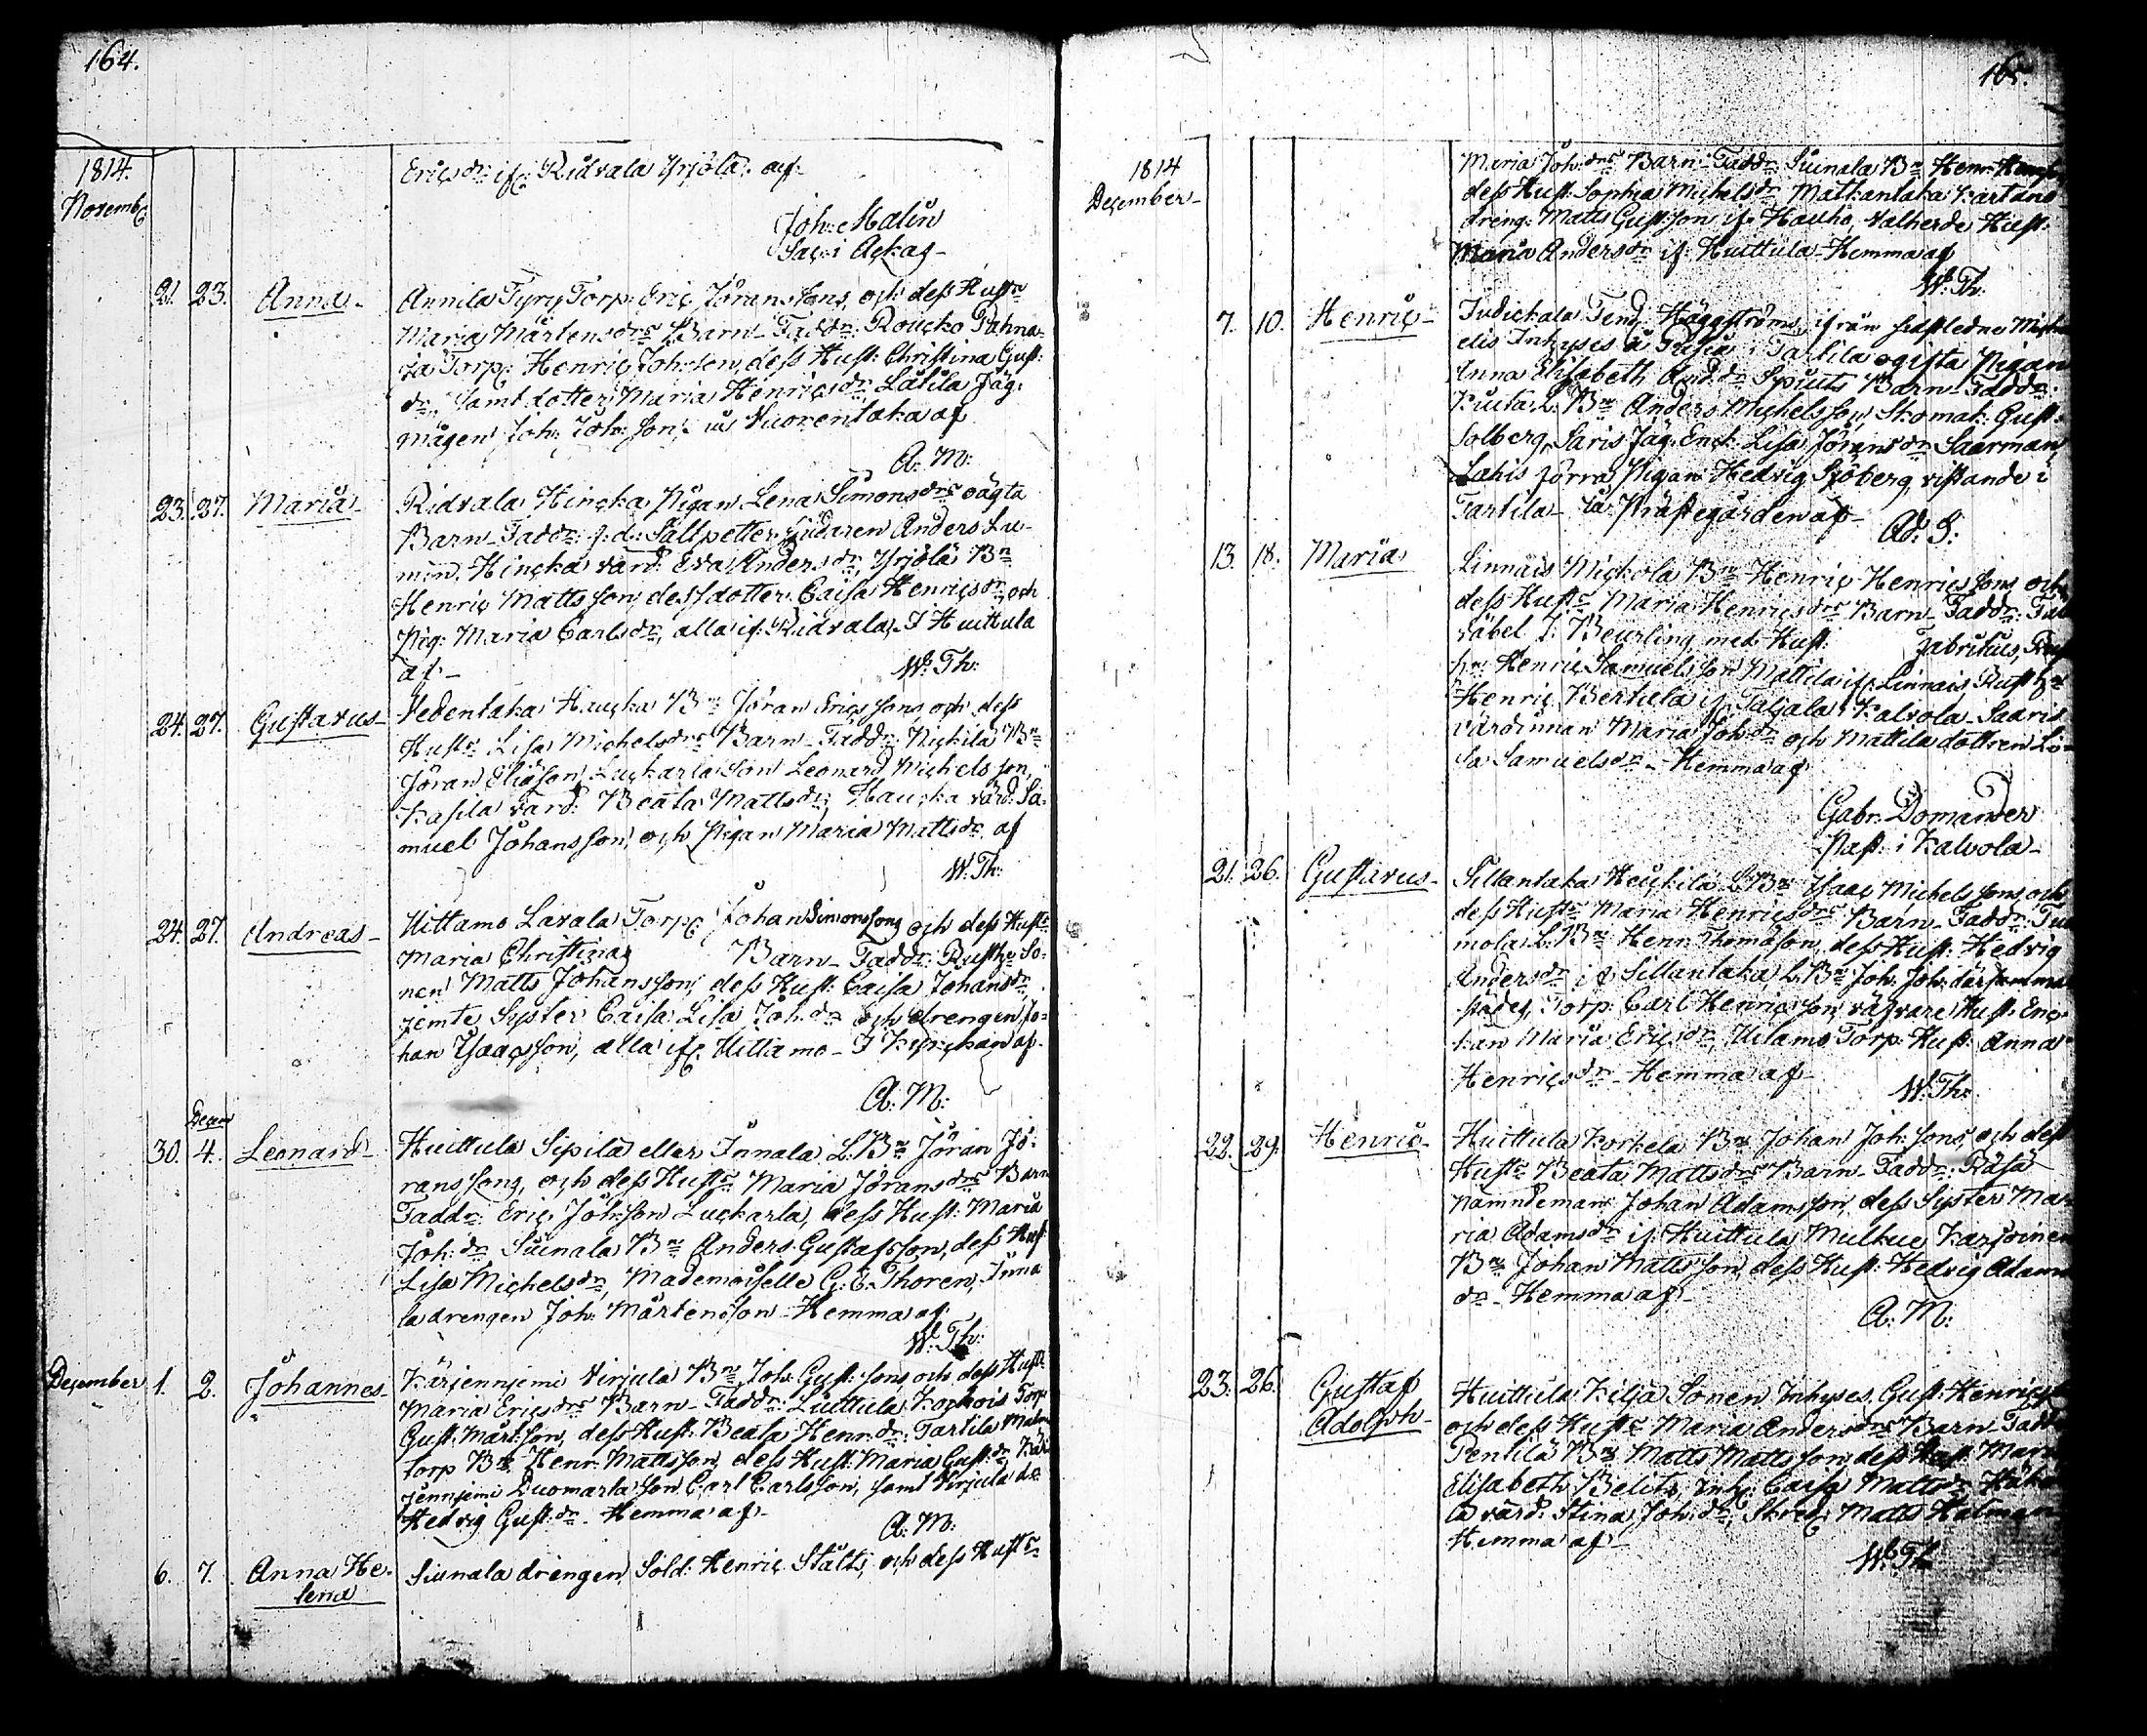 164.
1814.
Novemb:
Ericsdr: if: Ridvala Yrjölä. af
Joh: Malin
Sac: i Ackas
21. 23. Anna
Annila Tyry Torp: Eric Jöransons, och dess Hustr
Maria Mårtensdrs Barn. Faddr: Roucko
Torp: Henric Joh:son, dess Hust: Christina Gust:
dr, samt dotter Maria Henricsdr, Jäg:
mågen Joh: Joh:son, Vuorentaka af
A: M:
23. 27. Maria
Ridvala Hincka Pigan Lena Simonsdrs oägta
Barn. Faddr: f: d: Saltpetter sjudaren Anders Lu-
min. Hincka värd: Eva Andersdr, Yrjölä Bn
Henric Mattsson, dess dotter Caisa Henricsdr, och
Pig: Maria Carlsdr, alla if: Ridvala. I Huittula
af
W: Th:
24. 27. Gustavus
Vedentaka Haucka Bn Jöran Ericssons, och dess
Hustr Lisa Michelsdrs Barn. Faddr: Nickilä Bn
Jöran Eliason, Luckarla Son Leonard Michelsson,
värd: Beata Mattsdr, Haucka värd: Sa-
muel Johansson, och Pigan Maria Mattsdr af
W: Th:
24. 27. Andreas
Uittamo Lavala Torp: Johan Simonssons och dess Hustr
Maria Christinas Barn. Faddr: Rusth: So-
nen Matts Johansson, dess Hust: Caisa Johansdr,
jemte Syster Caisa Lisa Joh:dr och drengen Jo-
han Ysaacsson, alla if: Uittamo. I Kyrckan af
A: M:
Decem
30. 4. Leonard
Huittula Sipilä eller Innala L:Bn Jöran Jö-
ranssons, och dess Hustr Maria Jöransdrs Barn
Faddr: Eric Joh:son Luckarla, dess Hust: Maria
Joh:dr Suinala Bn Anders Gustafsson, dess Hust
Lisa Michelsdr, Mademoiselle G: E: Thoren, Inna
la drengen Joh: Mårtensson. Hemma af
W: Th:
December 1. 2. Johannes
Kärjenniemi Virjula Bn Joh: Gust:sons, och dess Hustr
Maria Ericsdrs Barn. Faddr: Luttula Torp
Gust: Mårt:son, dess Hust: Beata Henr:dr, Tarttila
torp Bn Henr: Mattsson, dess Hust: Maria Gust:dr Kär
jenniemi Duomarla Son Carl Carlsson, samt Virjula dr
Hedvig Gust:dr. Hemma af
A: M:
6. 7. Anna He-
lena
Suinala drengen Sold: Henric Stålts, och dess Hustr
165.
1814
December
Maria Joh:drs Barn. Faddr: Suinala Bn Henr:
dess Hust: Sophia Michelsdr Matkantaka Kartano
dreng: Matts Gust:son if: Hauho, Hust:
Maria Andersdr if: Huittula. Hemma af
W: Th:
7. 10. Henric
Häggströms, ifrån
elis Inhyses i Tarttila ogifta Pigan
Anna Elisabeth And:dr Barn. Faddr:
L: Bn Anders Michelsson, Skomak: Gust:
Solberg, Saris Jäg: Enk: Lisa Jöransdr Saarman
Lahis förra Pigan Hedvig Sjöberg, vistande i
Tarttila Prästegården af
Ad: S:
13. 18. Maria
Linnais Mickola Bn Henric Henricssons och
dess Hustr Maria Henricsdrs Barn. Faddr:
J: Beurling med Hust: Fabritius, Rust
hr Henric Samuelsson Mattila if: Linnais, Rusthr
Henric Bertula if: Taljala i Kalvola. Saaris
Värdinnan Maria Joh:dr och Mattila dottren Li-
sa Samuelsdr. Hemma af
Gabr: Domander
Past: i Kalvola
21. 26. Gustavus
Sillantaka Heickilä L:Bn Ysaac Michelssons och
dess Hustr Maria Henricsdrs Barn. Faddr:
mola L:Bn Henr: Thomasson, dess Hust: Hedvig
Andersdr if: Sillantaka, L:Bn Joh: Joh: därsamma
städes, Torp: Carl Henricson Hust: Enc-
kan Maria Ericsdr, Torp: Hust: Anna
Henricsdr. Hemma af
W: Th:
22. 29. Henric
Huittula Korkela Bn Johan Joh:sons och dess
Hustr Beata Mattsdrs Barn. Faddr: Räsä
Nämndeman Johan Adamsson, dess Syster Ma-
ria Adamsdr if: Huittula Mulkue Karjoinen
Bn Johan Mattsson, dess Hust: Hedvig Adams
dr. Hemma af
A: M:
23. 26. Gustaf
Adolph
Huittula Kiljä Sonen Inhyses Gust: Henrics
och dess Hustr Maria Andersdrs Barn. Faddr
Penttilä Bn Matts Mattsson, dess Hust: Maria
Elisabeth Belitz, Inh: Caisa Mattsdr
värd: Stina Joh:dr, Skred: Matts
Hemma af
W: Th